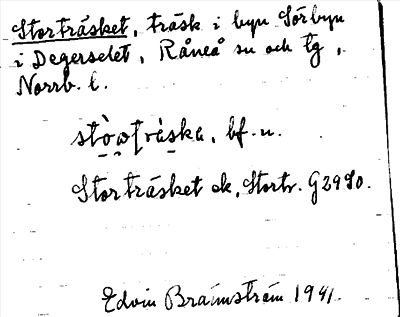 Storträsket, träsk i byn Sörbyn
i Degerselet, Råneå sn och tg,
Norrb. l.
bf. n.
Storträsket ek, Stortr. G2980.
Edvin Brännström 1941.